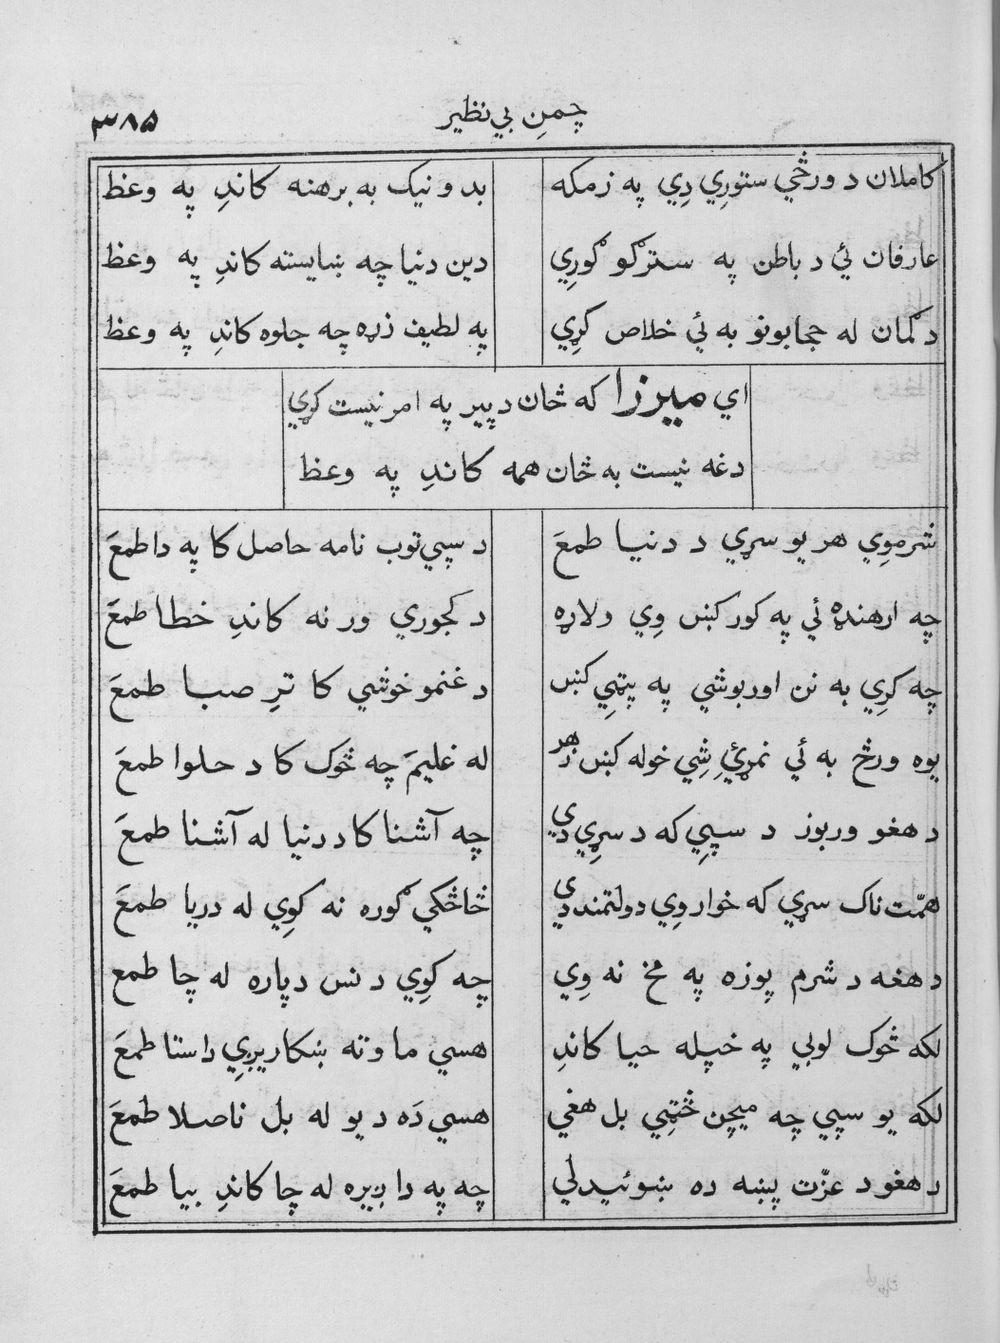 چمنِ بي نظير
۳۸۵
کاملان د ورځي ستورِي دِي په زمکه
بد و نيک به برهنه کاندِ په وعظ
عارفان ئي د باطن په سترګو ګورِي
دين دنيا چه ښايسته کاندِ په وعظ
د ګمان له حجابونو به ئي خلاص کړِي
په لطيف زړه چه جلوه کاندِ په وعظ
اي ميرزا که ځان د پير په امر نيست کړي
دغه نيست به ځان همه کاندِ په وعظ
شرموِي هر يو سړي د دنيا طمعَ
د سپي توب نامه حاصل کا په دا طمعَ
چه ارهنډه ئي په کور کښ وِي ولاړه
د کجوري ور نه کاندِ خطا طمعَ
چه کړِي به نن اوربوشي په پټِي کښ
د غنمو خوشي کا ترِ صبا طمعَ
يوه ورځ به ئي نمړئِ شِي خوله کښ زهر
له غليمَ چه څوک کا د حلوا طمعَ
د هغو وربوز د سپِي که د سړِي دي
چه آشنا کا د دنيا له آشنا طمعَ
همّت ناک سړي که خوار وِي دولتمند دي
څاڅکي ګوره نه کوِي له دريا طمعَ
د هغه د شرم پوزه په مخ نه وِي
چه کوِي د نس دپاره له چا طمع
لکه څوک لوبي په خپله حيا کاندِ
هسي ما وته ښکاريږِي راستا طمعَ
لکه يو سپي چه ميچن څټِي بل هغي
هسي دَه د يو له بل ناصلا طمعَ
د هغو د عزّت پښه ده ښوئيدلي
چه په دا ډيره له چا کاندِ بيا طمعَ